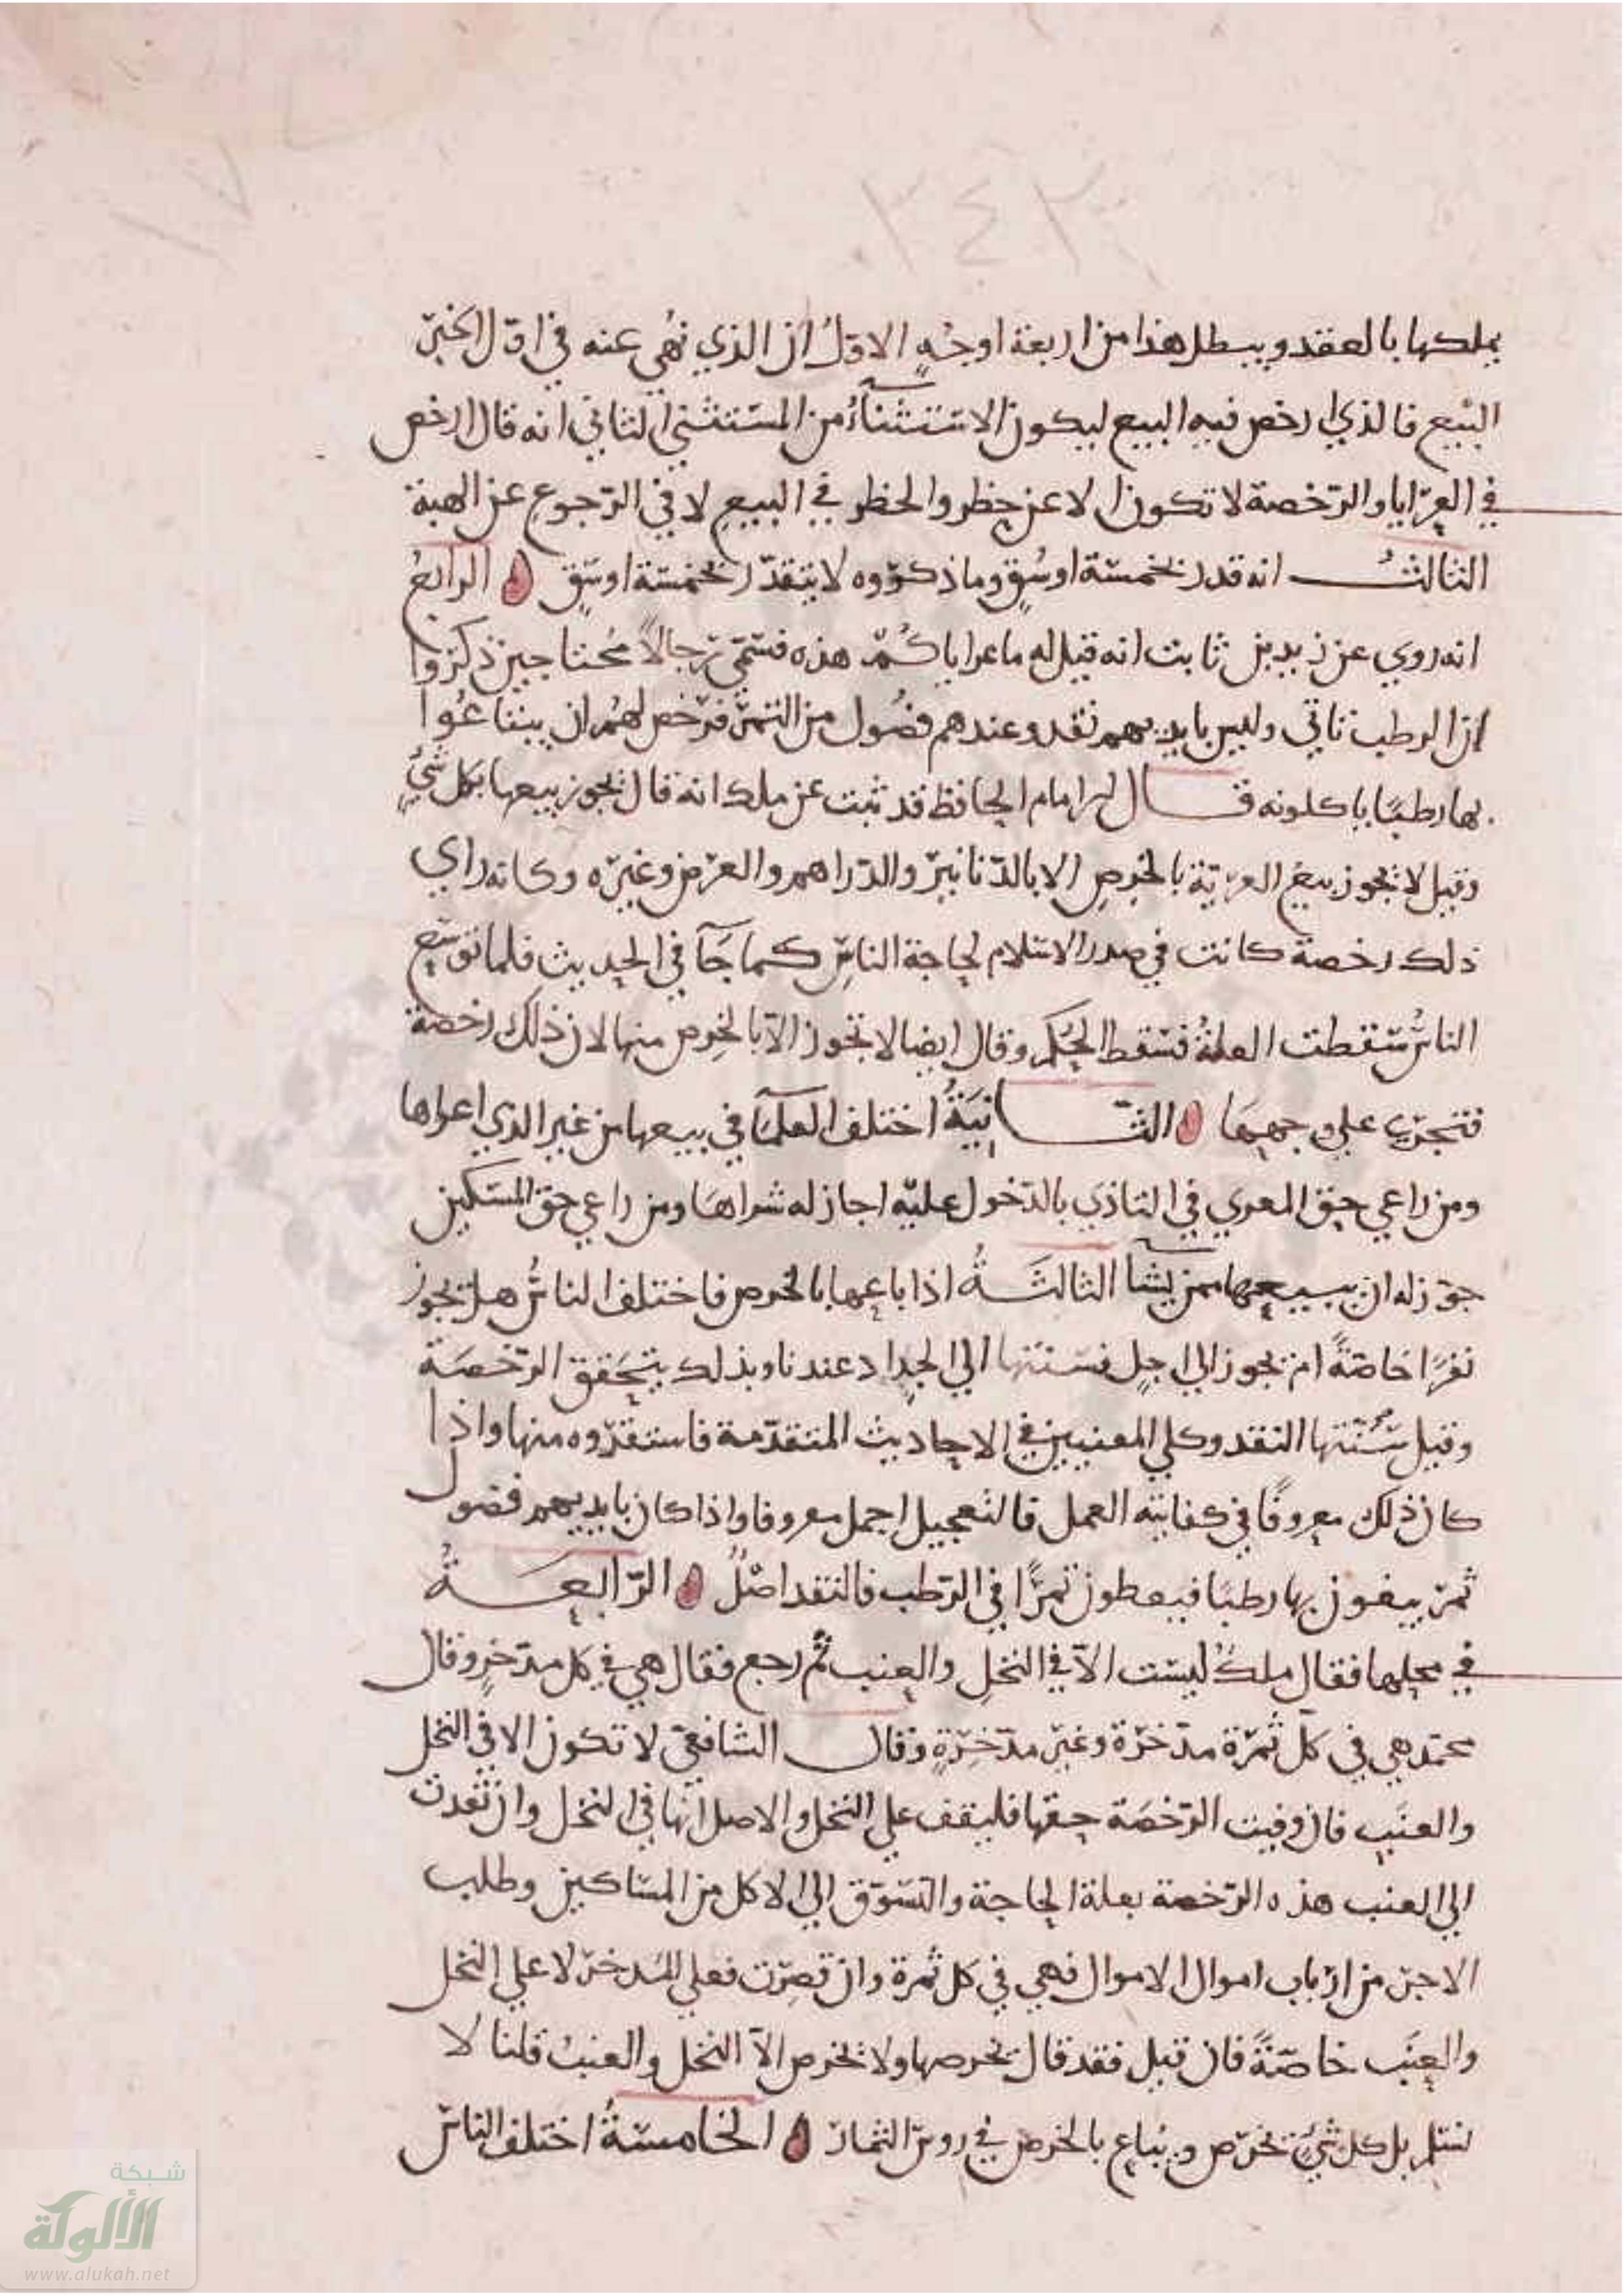 ٣٤٢
١٧
يملكها بالعقد ويبطل هذا من اربعة اوجهٍ الاوّلُ ان الذي نُهي عنه في اوّل الخبر
البيع فالذي ارخص فيه البيع ليكون الاستثناءُ من المستثنى الثاني انه قال ارخص
في العرايا والرّخصة لا تكون الا عن حظر والحظر في البيعِ لا في الرّجوع عن الهبة
الثالثُ انه قدر بخمسة اوسُقٍ وما ذكروه لا يتقدّر بخمسة اوسقٍ الرابعُ
انه روي عن زيد بن ثابت انه قيل له ما عراياكُمْ هذه فسمّى رجالاً محتاجين ذكروا
ان الرطب تاتي وليس بايديهم نقد وعندهم فضُول من التمر فرّخص لهُم ان يبتاعُوا
بها رطبًا ياكلونه قال الامام الحافظ قد ثبت عن ملك انه قال يجوز بيعها بكل شيءٍ
وقيل لا يجوز بيعُ العريّة بالخرصِ الا بالدّنانير والدّراهم والعرض وغيره وكانه راي
ذلك رخصة كانت في صدر الاسلام لحاجة الناسِ كما جآ في الحديث فلما توسّع
الناسُ سقطت العلةُ فسقط الحُكم وقال ايضا لا تجوز الاّ بالخرص منها لان ذلك رخصة
فتجري علي وجهها الثانيةُ اختلف العلمآ في بيعها من غير الذي اعراها
ومن راعي حق المعري في التاذي بالدّخول عليه اجاز له شراها ومن راعي حق المسكين
جوّز له ان يبيعها ممن يشآ الثالثَةُ اذا باعها بالخرص فاختلف الناسُ هل يجوز
نقدًا خاصّةً ام يجوز الي اجلٍ فسنتها الي الجداد عندنا وبذلك يتحقق الرّخصَة
وقيل سُنّتها النقد وكلي المعنيين في الاحاديث المتقدّمة فاستقرّوه منها واذا
كان ذلك معروفًا في كفايته العمل فالتعجيل اجمل معروفا واذا كان بايديهم فضول
ثمر يبغون بها رطبًا فيعطون تمرًا في الرّطب فالنقد اصْلٌ الرّابعَةُ
في محلها فقال ملكٌ ليست الاّ في النخلِ والعنب ثُم رجع فقال هي في كل مدّخرٍ وقال
محمد هي في كلّ ثمرة مدّخرة وغير مدّخرةٍ وقال الشافعيّ لا تكون الا في النخل
والعنَب فان وفيت الرّخصَة حقها فليقف علي النخل والاصل انّها في النخل وان تعدت
الي العنب هذه الرّخصة بعلة الحاجة والتسوّق الي الاكل من المساكين وطلب
الاجر من ارْباب اموال الاموال فهي في كل ثمرة وان قصِرت فعلي المدخر لا علي النخل
والعِنَب خاصّةً فان قيل فقد قال يخرصها ولا يخرص الاّ النخل والعنبُ قلنا لا
نسلم بل كل شيءٍ يخرّص ويُباع بالخرص في روس الثمار الخامسَةُ اختلف الناس
شبكة
الألوكة
www.alukah.net